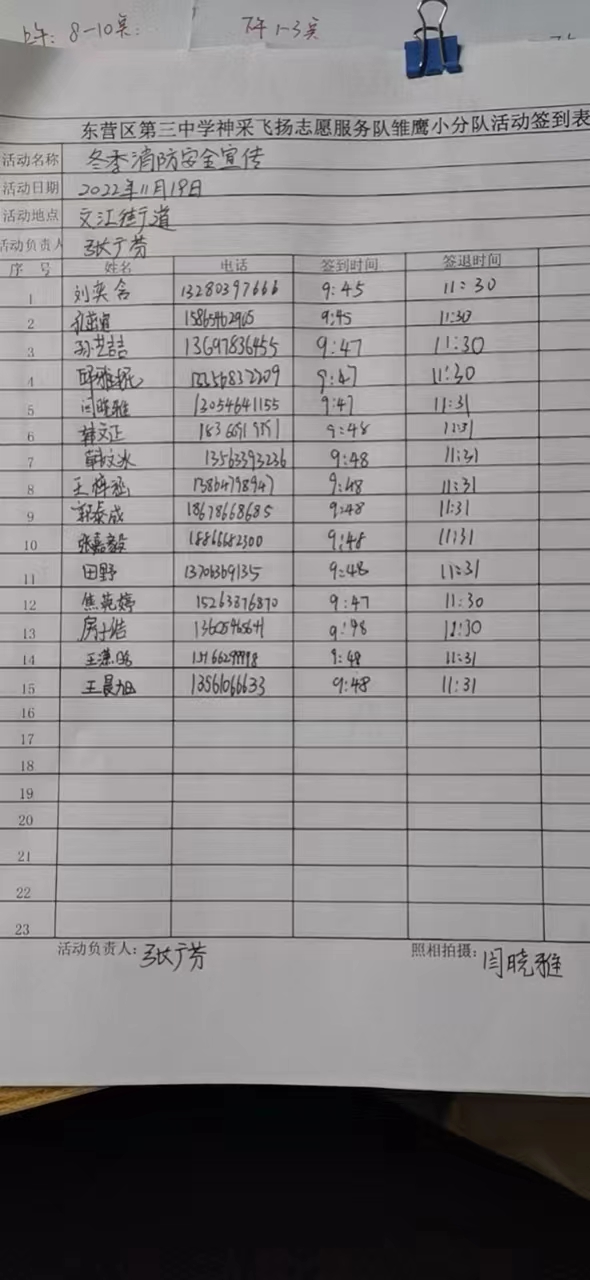 上午: 8-10点: 下午 1-3点
东营区第三中学神采飞扬志愿服务队雏鹰小分队活动签到表
活动名称 冬季消防安全宣传
活动日期 2022年11月19日
活动地点 文汇街道
活动负责人 张广芬
序 号 姓名 电话 签到时间 签退时间
1 刘奕含 13280397666 9:45 11:30
2 9:45 11:30
3 孙艺喆 13697836455 9:47 11:30
4 9:47 11:30
5 闫晓雅 13054641155 9:47 11:31
6 韩文正 9:48 11:31
7 韩文冰 13563393236 9:48 11:31
8 13864798947 9:48 11:31
9 郭泰成 18678668685 9:48 11:31
10 张嘉毅 18866682300 9:48 11:31
11 田野 13706369135 9:48 11:31
12 焦苑婷 15263876870 9:47 11:30
13 房子皓 9:48 11:30
14 9:48 11:31
15 王晨旭 13561066633 9:48 11:31
16
17
18
19
20
21
22
23
活动负责人: 张广芬 照相拍摄: 闫晓雅